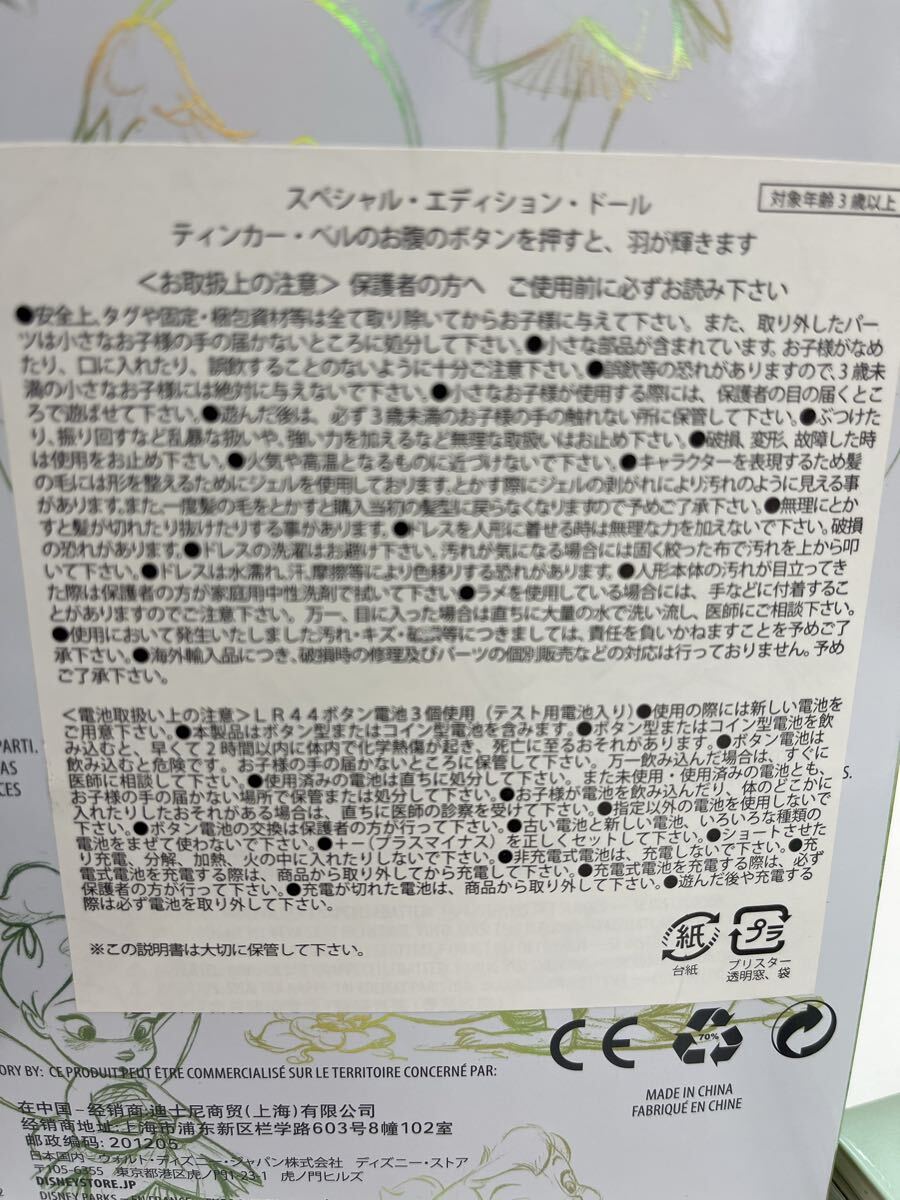 スペシャル・エディション・ドール
対象年齢3歳以上
ティンカー・ベルのお腹のボタンを押すと、羽が輝きます
＜お取扱上の注意＞ 保護者の方へ　ご使用前に必ずお読み下さい
●安全上、タグや固定・梱包資材等は全て取り除いてからお子様に与えて下さい。また、取り外したパー
ツは小さなお子様の手の届かないところに処分して下さい。●小さな部品が含まれています。お子様がなめ
たり、口に入れたり、誤飲することのないように十分ご注意下さい。●誤飲等の恐れがありますので、3歳未
満の小さなお子様には絶対に与えないで下さい。●小さなお子様が使用する際には、保護者の目の届くとこ
ろで遊ばせて下さい。●遊んだ後は、必ず3歳未満のお子様の手の触れない所に保管して下さい。●ぶつけた
り、振り回すなど乱暴な扱いや、強い力を加えるなど無理な取扱いはお止め下さい。●破損、変形、故障した時
は使用をお止め下さい。●火気や高温となるものに近づけないで下さい。●キャラクターを表現するため髪
の毛には形を整えるためにジェルを使用しております。とかす際にジェルの剥がれにより汚れのように見える事
があります。また、一度髪の毛をとかすと購入当初の髪型に戻らなくなりますので予めご了承下さい。●無理にとか
すと髪が切れたり抜けたりする事があります。●ドレスを人形に着せる時は無理な力を加えないで下さい。破損
の恐れがあります。●ドレスの洗濯はお避け下さい。汚れが気になる場合には固く絞った布で汚れを上から叩
いて下さい。●ドレスは水濡れ、汗、摩擦等により色移りする恐れがあります。●人形本体の汚れが目立ってき
た際は保護者の方が家庭用中性洗剤で拭いて下さい●ラメを使用している場合には、手などに付着するこ
とがありますのでご注意下さい。万一、目に入った場合は直ちに大量の水で洗い流し、医師にご相談下さい。
●使用において発生いたしました汚れ・キズ・破損等につきましては、責任を負いかねますことを予めご了
承下さい。●海外輸入品につき、破損時の修理及びパーツの個別販売などの対応は行っておりません。予め
ご了承下さい。
＜電池取扱い上の注意＞ＬＲ４４ボタン電池３個使用（テスト用電池入り）●使用の際には新しい電池を
ご用意下さい。●本製品はボタン型またはコイン型電池を含みます。●ボタン型またはコイン型電池を飲
み込むと、早くて２時間以内に体内で化学熱傷が起き、死亡に至るおそれがあります。●ボタン電池は
飲み込むと危険です。お子様の手の届かないところに保管して下さい。万一飲み込んだ場合は、すぐに
医師に相談して下さい。●使用済みの電池は直ちに処分して下さい。また未使用・使用済みの電池とも、
お子様の手の届かない場所で保管または処分して下さい。●お子様が電池を飲み込んだり、体のどこかに
入れたりしたおそれがある場合は、直ちに医師の診察を受けて下さい。●指定以外の電池を使用しないで
下さい。●ボタン電池の交換は保護者の方が行って下さい。●古い電池と新しい電池、いろいろな種類の
電池をまぜて使わないで下さい。●＋－(プラスマイナス)を正しくセットして下さい。●ショートさせた
り充電、分解、加熱、火の中に入れたりしないで下さい。●非充電式電池は、充電しないで下さい。●充
電式電池を充電する際は、商品から取り外してから充電して下さい。●充電式電池を充電する際は、必ず
保護者の方が行って下さい。●充電が切れた電池は、商品から取り外して下さい。●遊んだ後や充電する
際は必ず電池を取り外して下さい。
※この説明書は大切に保管して下さい。
紙
台紙
プラ
ブリスター
透明窓、袋
PARTI.
AS
CES
S.
CE
70%
ORY BY: CE PRODUIT PEUT ÊTRE COMMERCIALISÉ SUR LE TERRITOIRE CONCERNÉ PAR:
MADE IN CHINA
FABRIQUÉ EN CHINE
在中国-经销商:迪士尼商贸(上海)有限公司
经销商地址:上海市浦东新区栏学路603号8幢102室
邮政编码: 201205
日本国内－ウォルト・ディズニー・ジャパン株式会社　ディズニー・ストア
〒105-6355　東京都港区虎ノ門1-23-1　虎ノ門ヒルズ
DISNEYSTORE.JP
DISNEY PARKS – EN FRANCE